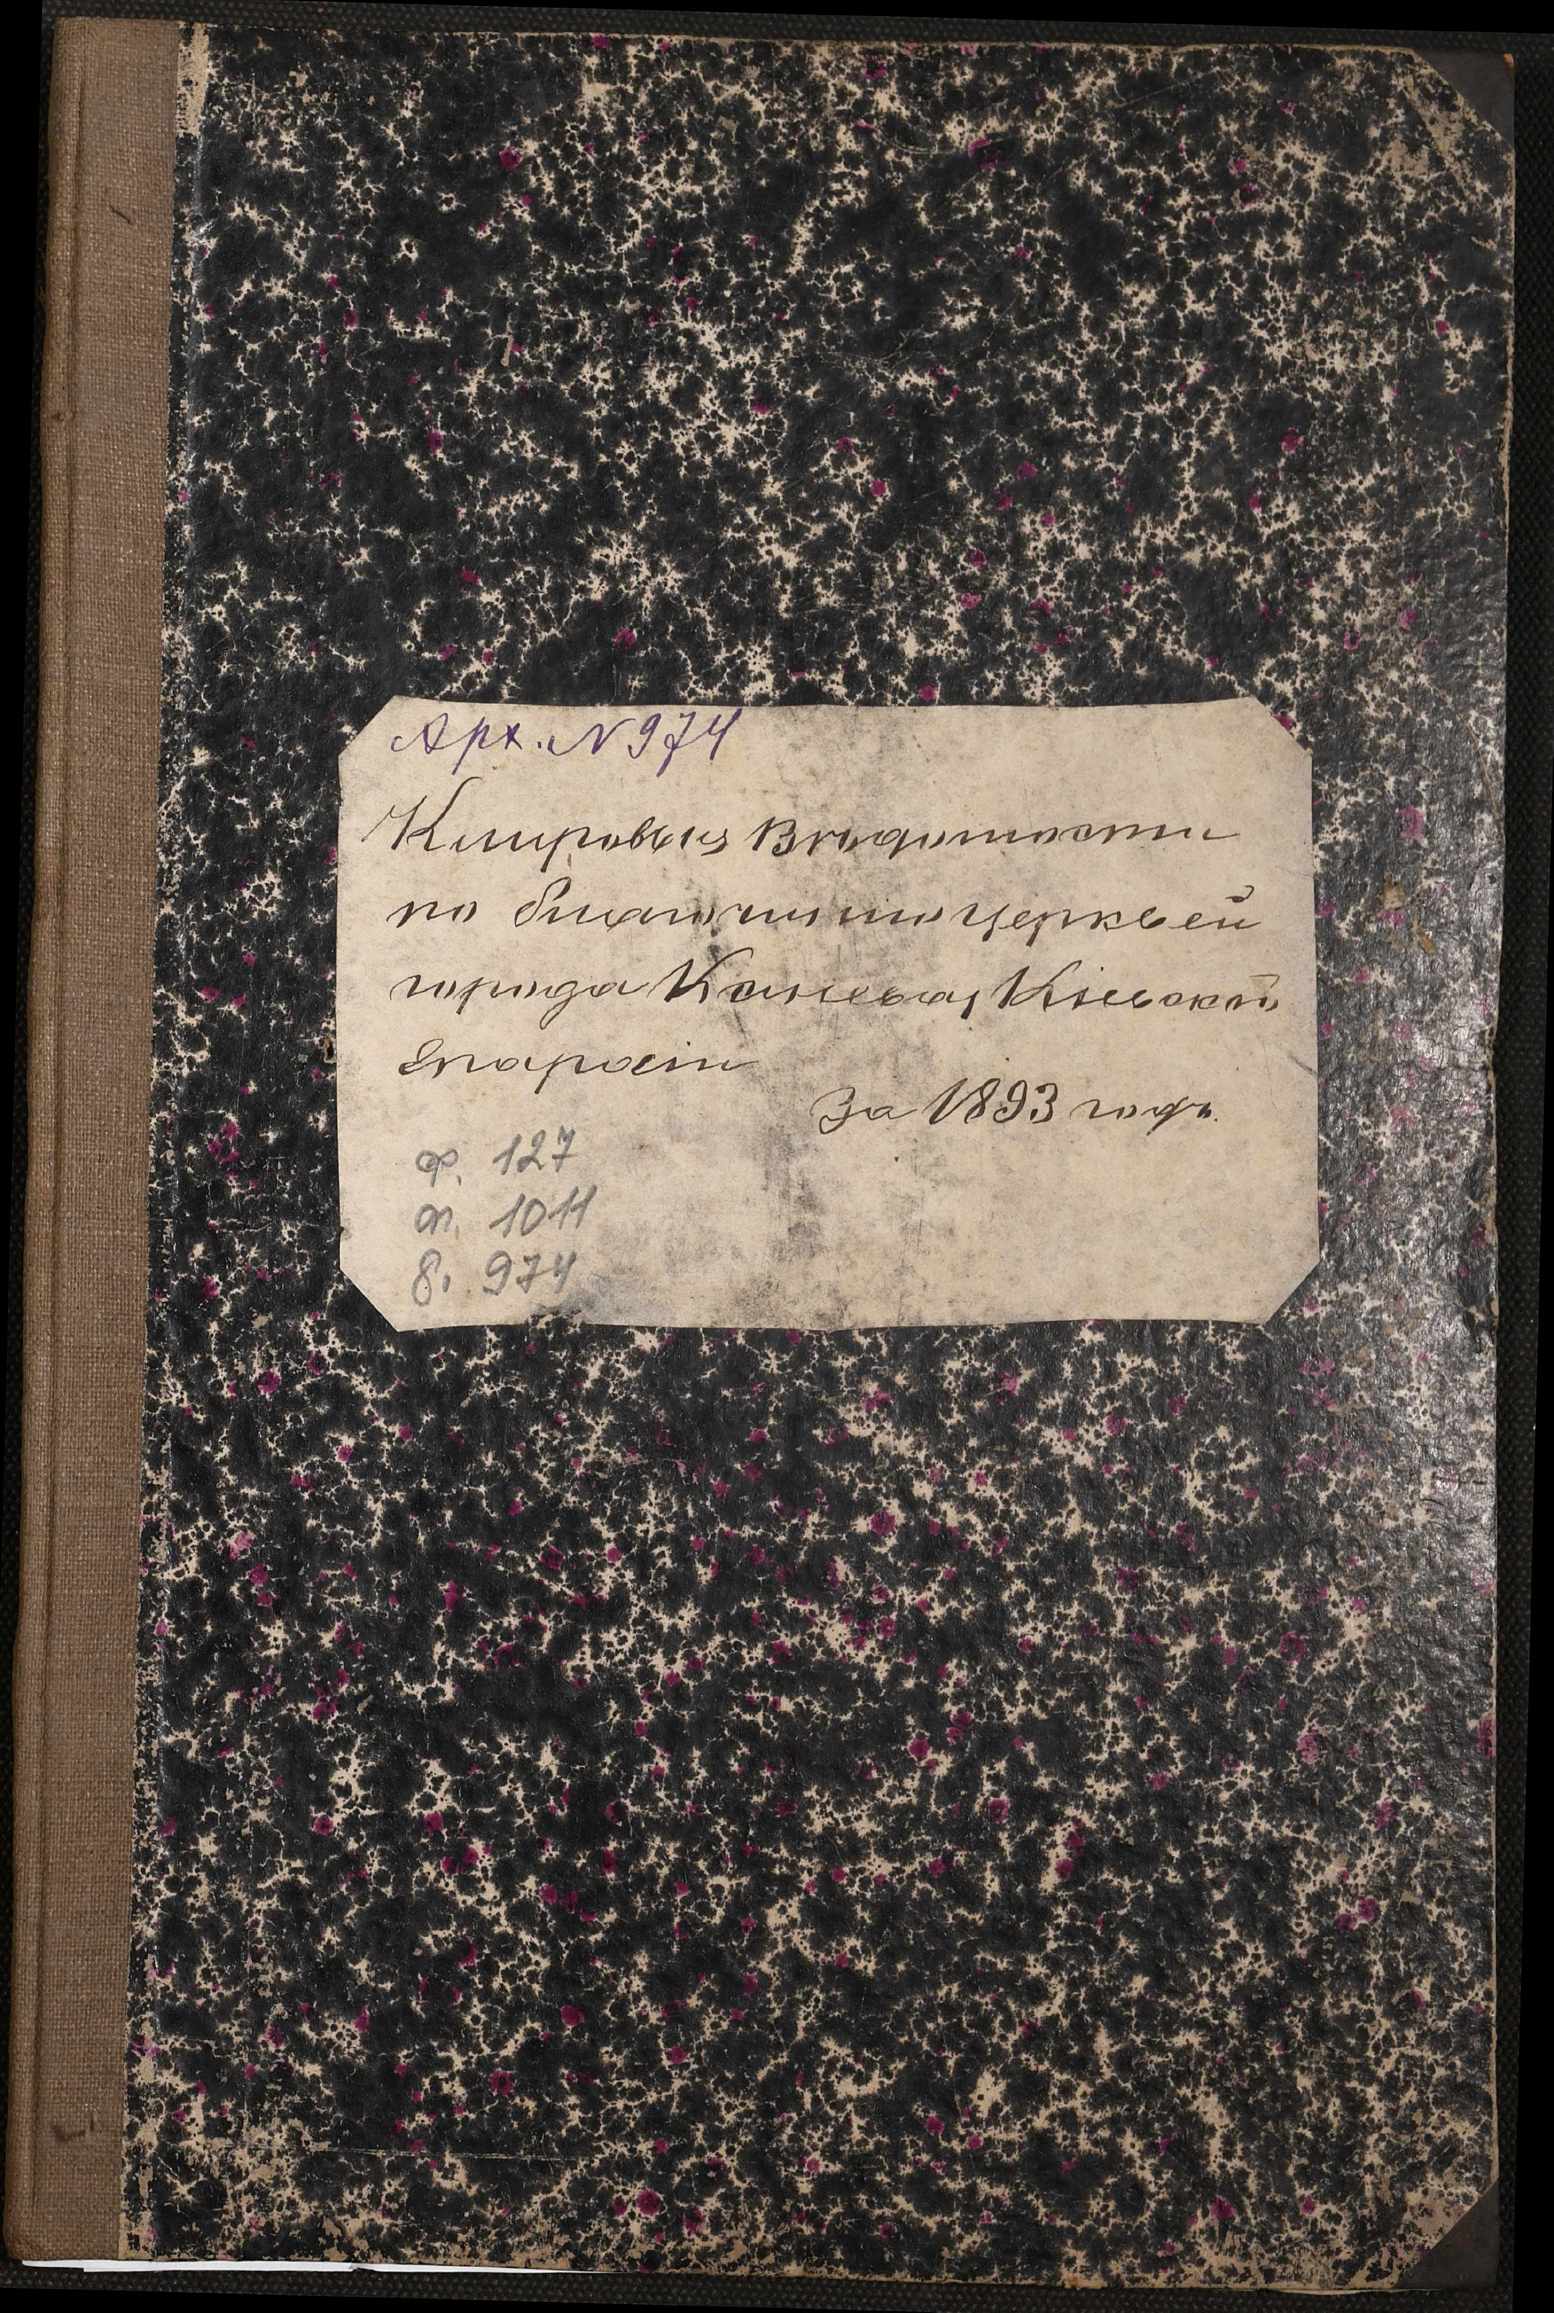 Арх. N 974
Клировыя Вѣдомости
по благочинiю церквей
города Канева, Кiевской
Епархiи
За 1893 годъ.
ф. 127
оп. 1011
д. 974